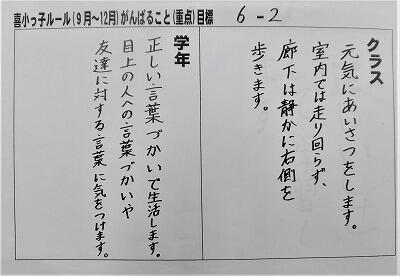 喜小っ子ルール(9月～12月)がんばること(重点)目標 6-2
クラス
元気にあいさつをします。
室内では走り回らず、
廊下は静かに右側を
歩きます。
学年
正しい言葉づかいで生活します。
目上の人への言葉づかいや
友達に対する言葉に気をつけます。